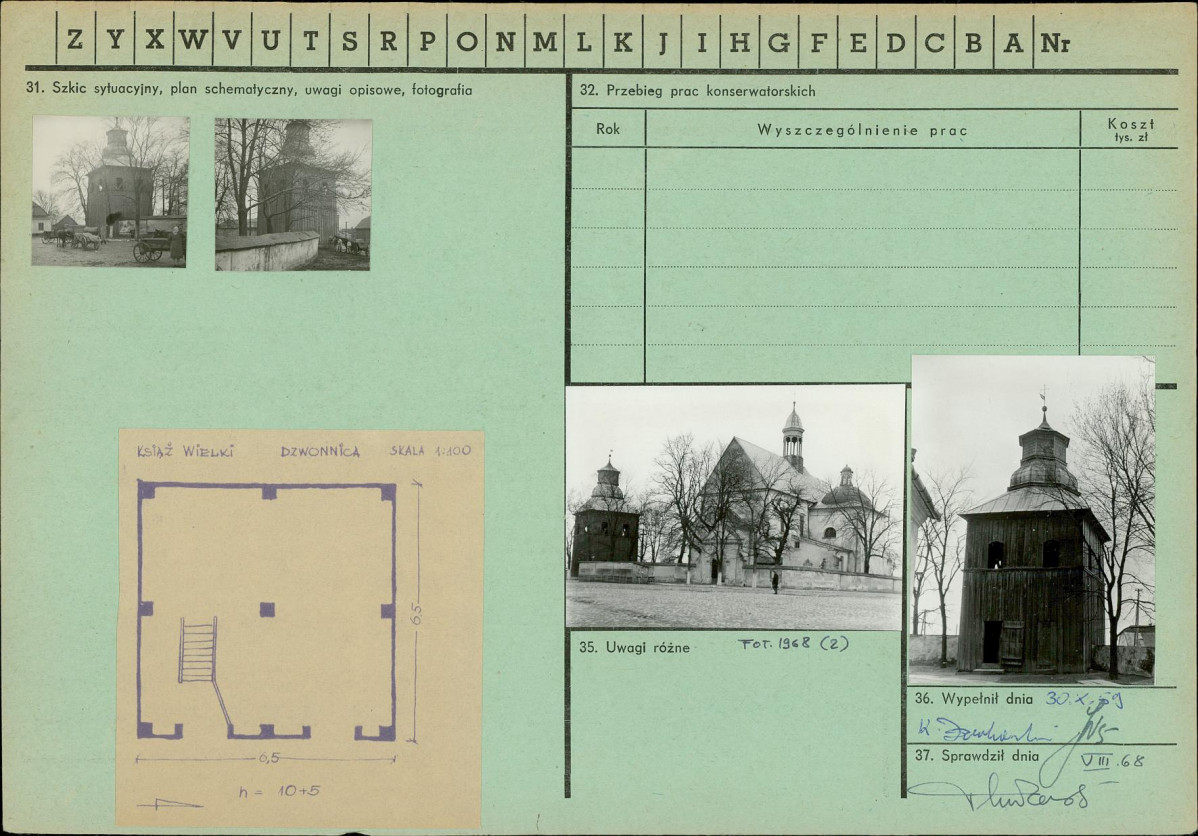 Z Y X W V U T S R P O N M L K J I H G F E D C B A Nr
31. Szkic sytuacyjny, plan schematyczny, uwagi opisowe, fotografia
32. Przebieg prac konserwatorskich
Rok
Wyszczególnienie prac
Koszt
tys. zł
KSIĄŻ WIELKI DZWONNICA SKALA 1:100
6,5
6,5
h = 10+5
35. Uwagi różne
FOT. 1968 (2)
36. Wypełnił dnia 30.X.59
37. Sprawdził dnia
VIII.68